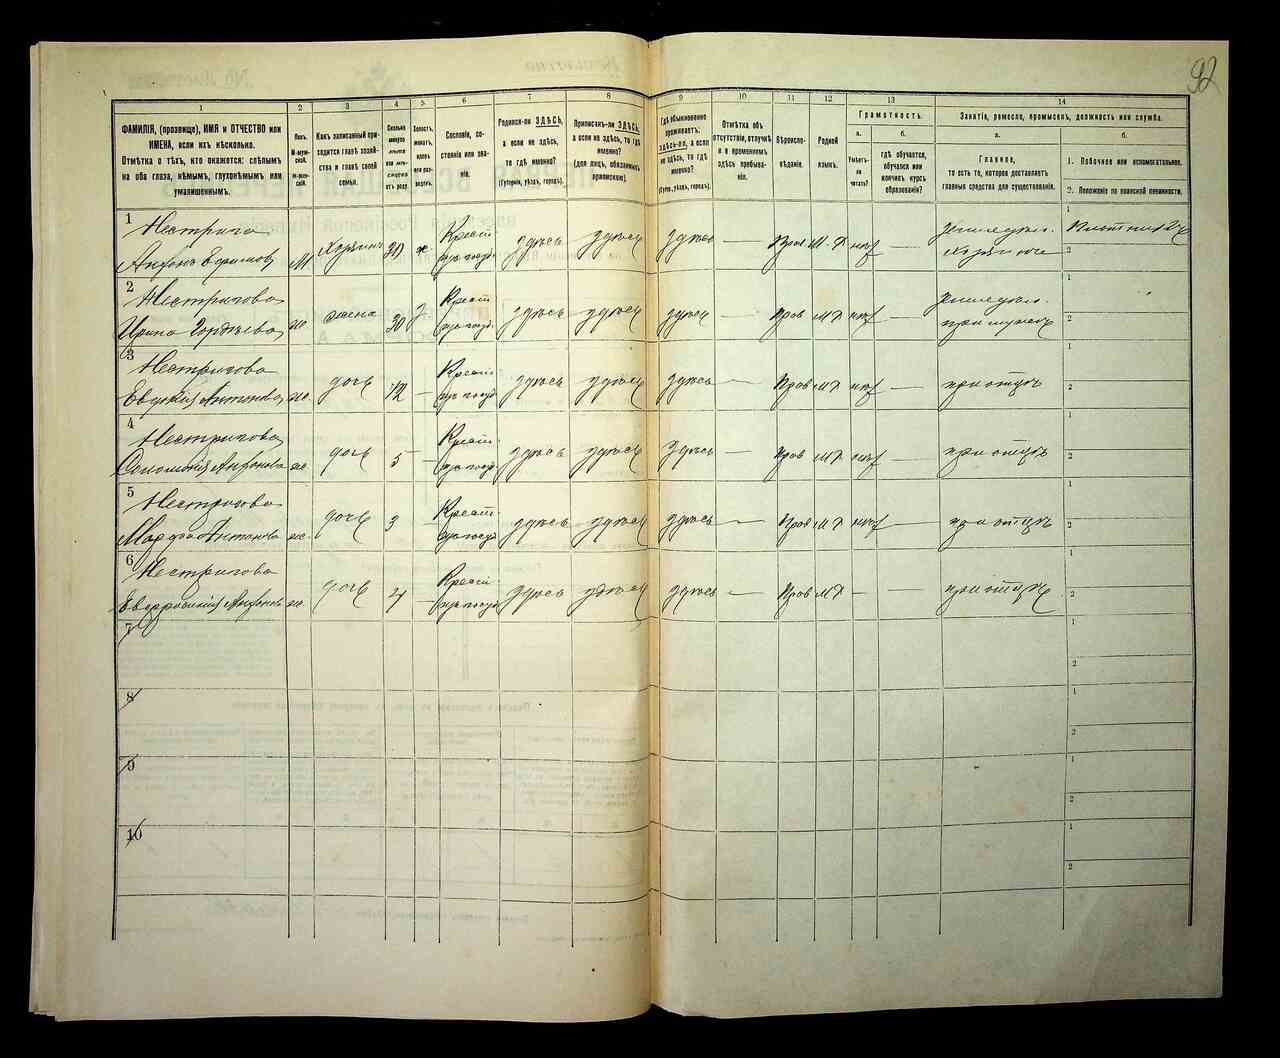 92
1 2 3 4 5 6 7 8 9 10 11 12 13 14
ФАМИЛІЯ, (прозвище), ИМЯ и ОТЧЕСТВО или
ИМЕНА, если ихъ нѣсколько.
Отмѣтка о тѣхъ, кто окажется: слѣпымъ
на оба глаза, нѣмымъ, глухонѣмымъ или
умалишеннымъ.
Полъ.
М-мужской.
Ж-женскій.
Какъ записанный при-
ходится главѣ хозяй-
ства и главѣ своей
семьи.
Сколько
минуло
лѣтъ
Холостъ,
женатъ,
вдовъ
или раз-
веденъ.
Сословіе, со-
стояніе или зва-
ніе.
Родился-ли ЗДѢСЬ,
а если не здѣсь,
то гдѣ именно?
(Губернія, уѣздъ, городъ).
Приписанъ-ли ЗДѢСЬ,
а если не здѣсь, то гдѣ
именно?
(для лицъ, обязанныхъ
припискою).
Гдѣ обыкновенно
проживаетъ:
ЗДѢСЬ-ли, а если
не здѣсь, то гдѣ
именно?
(Губ., уѣздъ, городъ).
Отмѣтка объ
отсутствіи, отлучкѣ
и о временномъ
здѣсь пребыва-
ніи.
Вѣроиспо-
вѣданіе.
Родной
языкъ.
Грамотность.
а.
Умѣетъ-
ли
читать?
б.
гдѣ обучается,
обучался или
кончилъ курсъ
образованія?
Занятіе, ремесло, промыселъ, должность или служба.
а.
Главное,
то есть то, которое доставляетъ
главныя средства для существованія.
б.
1. Побочное или вспомогательное.
2. Положеніе по воинской повинности.
1 Нестрига
Антонъ Ефимовъ М. Хозяинъ 30 ж Крест. здѣсь здѣсь здѣсь — Прав М.Р нѣт — Земледѣл. Хозяинъ 1 Плотникъ 2
2 Нестригова
Ирина Гордѣева ж. жена 30 Крест. здѣсь здѣсь здѣсь — Прав М.Р нѣт — Земледѣл. при мужѣ 1 2
3 Нестригова
Евдокия Антонова ж. дочь 12 — Крест. здѣсь здѣсь здѣсь — Прав М.Р нѣт — при отцѣ 1 2
4 Нестригова
Антонова ж. дочь 5 — Крест. здѣсь здѣсь здѣсь — Прав М.Р нѣт — при отцѣ 1 2
5 Нестригова
Марфа Антонова ж. дочь 3 — Крест. здѣсь здѣсь здѣсь — Прав М.Р нѣт — при отцѣ 1 2
6 Нестригова
Антонова ж. дочь — Крест. здѣсь здѣсь здѣсь — Прав М.Р — — при отцѣ 1 2
7 1 2
8 1 2
9 1 2
10 1 2